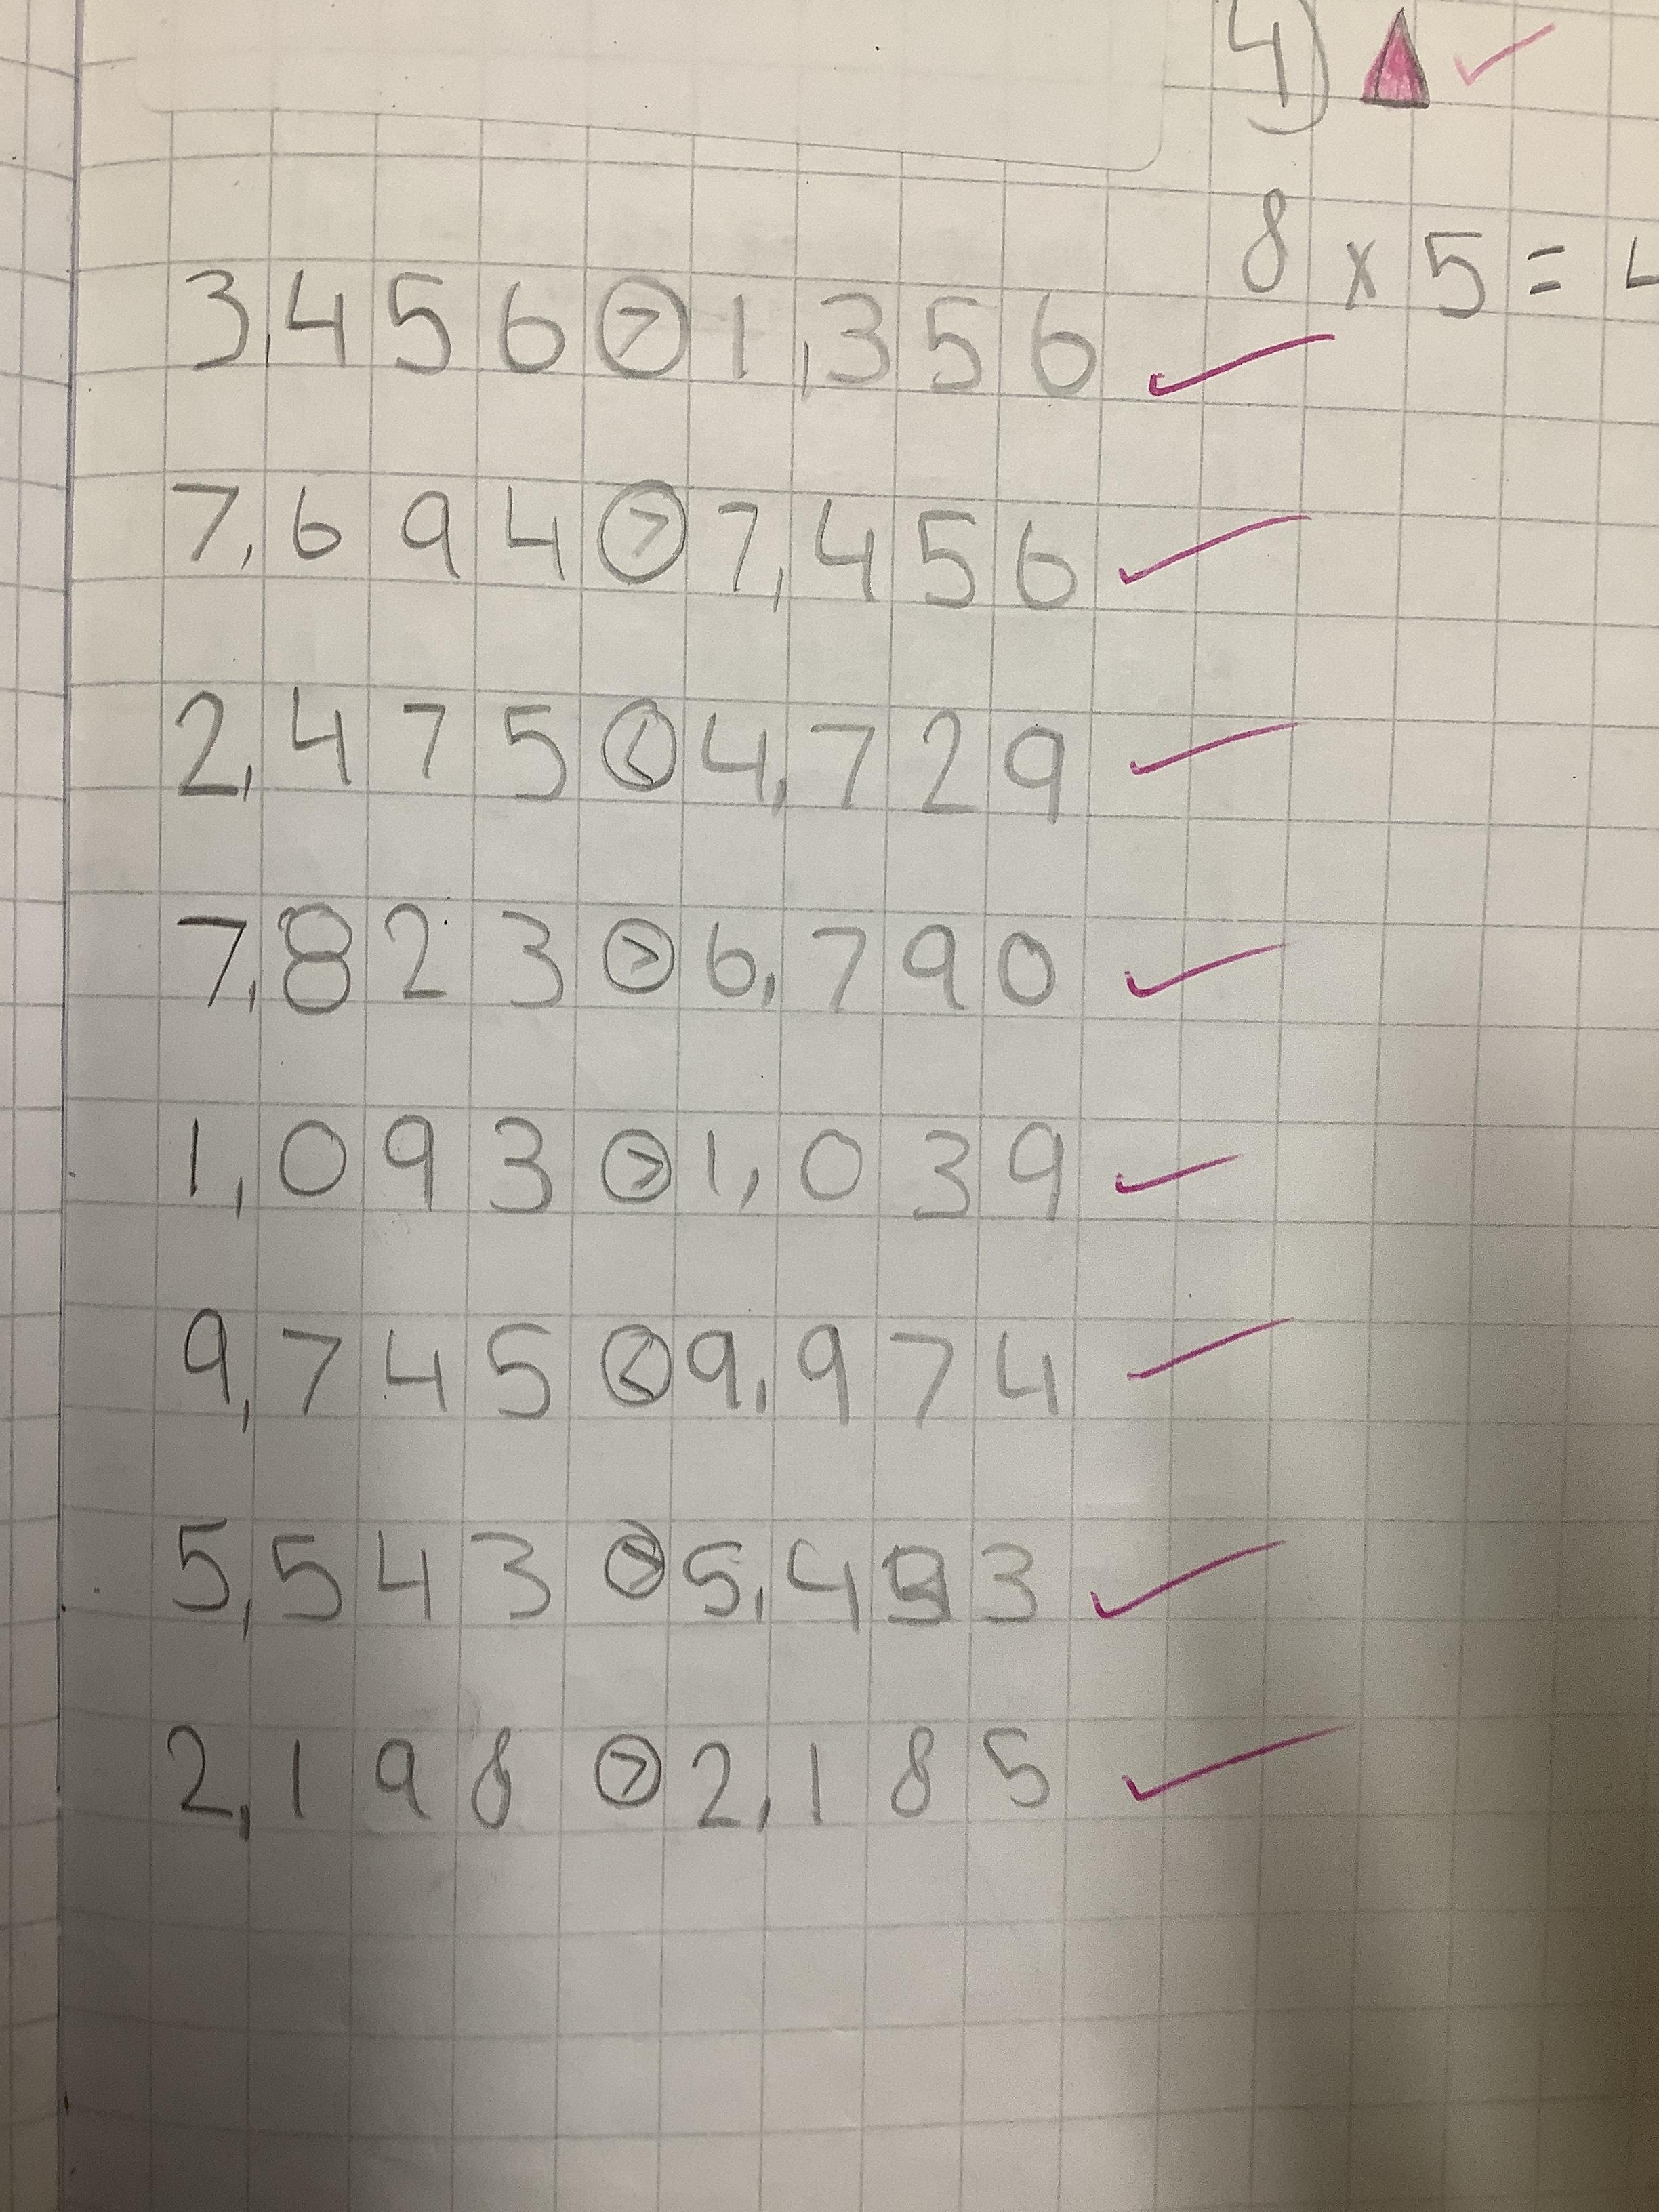 4)
8 x 5 =
3,456 > 1,356
7,694 > 7,456
2,475 < 4,729
7,823 > 6,790
1,093 > 1,039
9,745 < 9,974
5,543 > 
2,198 > 2,185